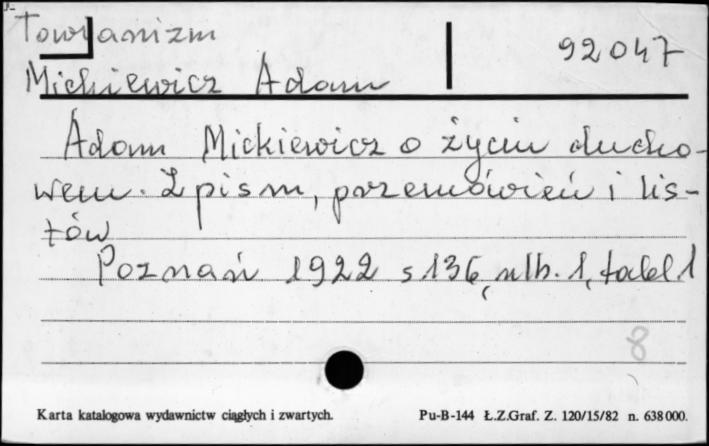 Towianizm
92047
Mickiewicz Adam
Adam Mickiewicz o życiu ducho-
wem. Z pism, przemówień i lis-
tów
Poznań 1922 s 136, nlb. 1, tabl 1
8
Karta katalogowa wydawnictw ciągłych i zwartych.
Pu-B-144 Ł.Z.Graf. Z. 120/15/82 n. 638000.